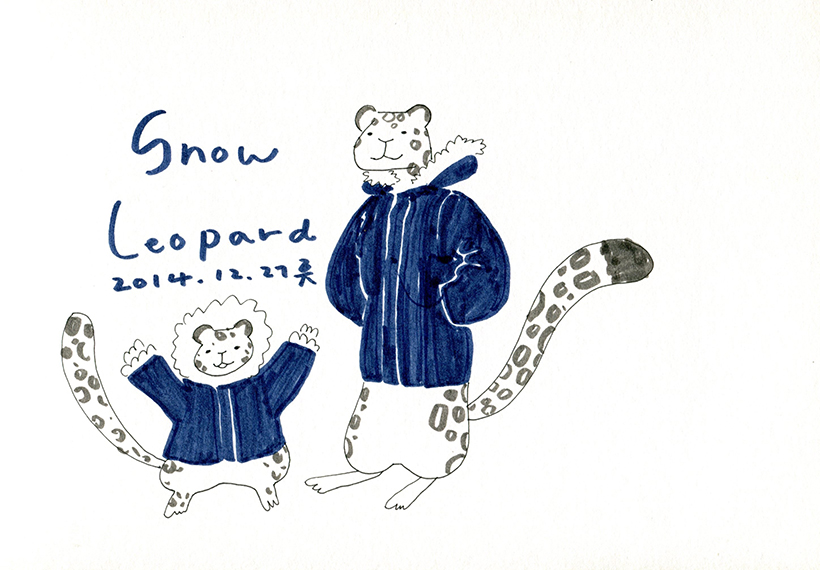 Snow
Leopard
2014.12.27